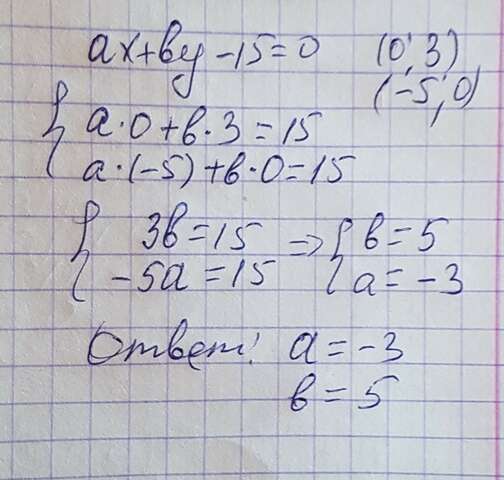 ax+by-15=0 (0;3)
(-5;0)
{ a·0+b·3=15
a·(-5)+b·0=15
{ 3b=15 => { b=5
-5a=15 a=-3
Ответ: a=-3
b=5